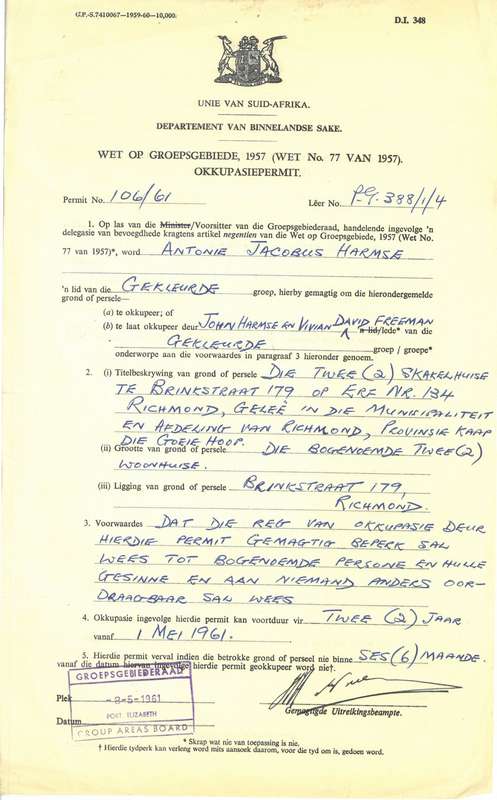 G.P.-S.7410067—1959-60—10,000.
D.I. 348
UNIE VAN SUID-AFRIKA.
DEPARTEMENT VAN BINNELANDSE SAKE.
WET OP GROEPSGEBIEDE, 1957 (WET No. 77 VAN 1957).
OKKUPASIEPERMIT.
Permit No. 106/61 Lêer No. P.G. 388/1/4
1. Op las van die Minister/Voorsitter van die Groepsgebiederaad, handelende ingevolge 'n
delegasie van bevoegdhede kragtens artikel negentien van die Wet op Groepsgebiede, 1957 (Wet No.
77 van 1957)*, word ANTONIE JACOBUS HARMSE
'n lid van die GEKLEURDE groep, hierby gemagtig om die hierondergemelde
grond of persele—
(a) te okkupeer; of
(b) te laat okkupeer deur JOHN HARMSE EN VIVIAN DAVID FREEMAN 'n lid/lede* van die
GEKLEURDE groep / groepe*
onderworpe aan die voorwaardes in paragraaf 3 hieronder genoem.
2. (i) Titelbeskrywing van grond of persele DIE TWEE (2) SKAKELHUISE
TE BRINKSTRAAT 179 OP ERF NR. 134
RICHMOND, GELEË IN DIE MUNICIPALITEIT
EN AFDELING VAN RICHMOND, PROVINSIE KAAP
DIE GOEIE HOOP.
(ii) Grootte van grond of persele DIE BOGENOEMDE TWEE (2)
WOONHUISE.
(iii) Ligging van grond of persele BRINKSTRAAT 179,
RICHMOND.
3. Voorwaardes DAT DIE REG VAN OKKUPASIE DEUR
HIERDIE PERMIT GEMAGTIG BEPERK SAL
WEES TOT BOGENOEMDE PERSONE EN HULLE
GESINNE EN AAN NIEMAND ANDERS OOR-
DRAAGBAAR SAL WEES
4. Okkupasie ingevolge hierdie permit kan voortduur vir TWEE (2) JAAR
vanaf 1 MEI 1961.
5. Hierdie permit verval indien die betrokke grond of perseel nie binne SES (6) MAANDE
vanaf die datum hiervan ingevolge hierdie permit geokkupeer word nie†.
GROEPSGEBIEDERAAD
Plek
-8-5-1961
PORT ELIZABETH
Gemagtigde Uitreikingsbeampte.
Datum
GROUP AREAS BOARD
* Skrap wat nie van toepassing is nie.
† Hierdie tydperk kan verleng word mits aansoek daarom, voor die tyd om is, gedoen word.